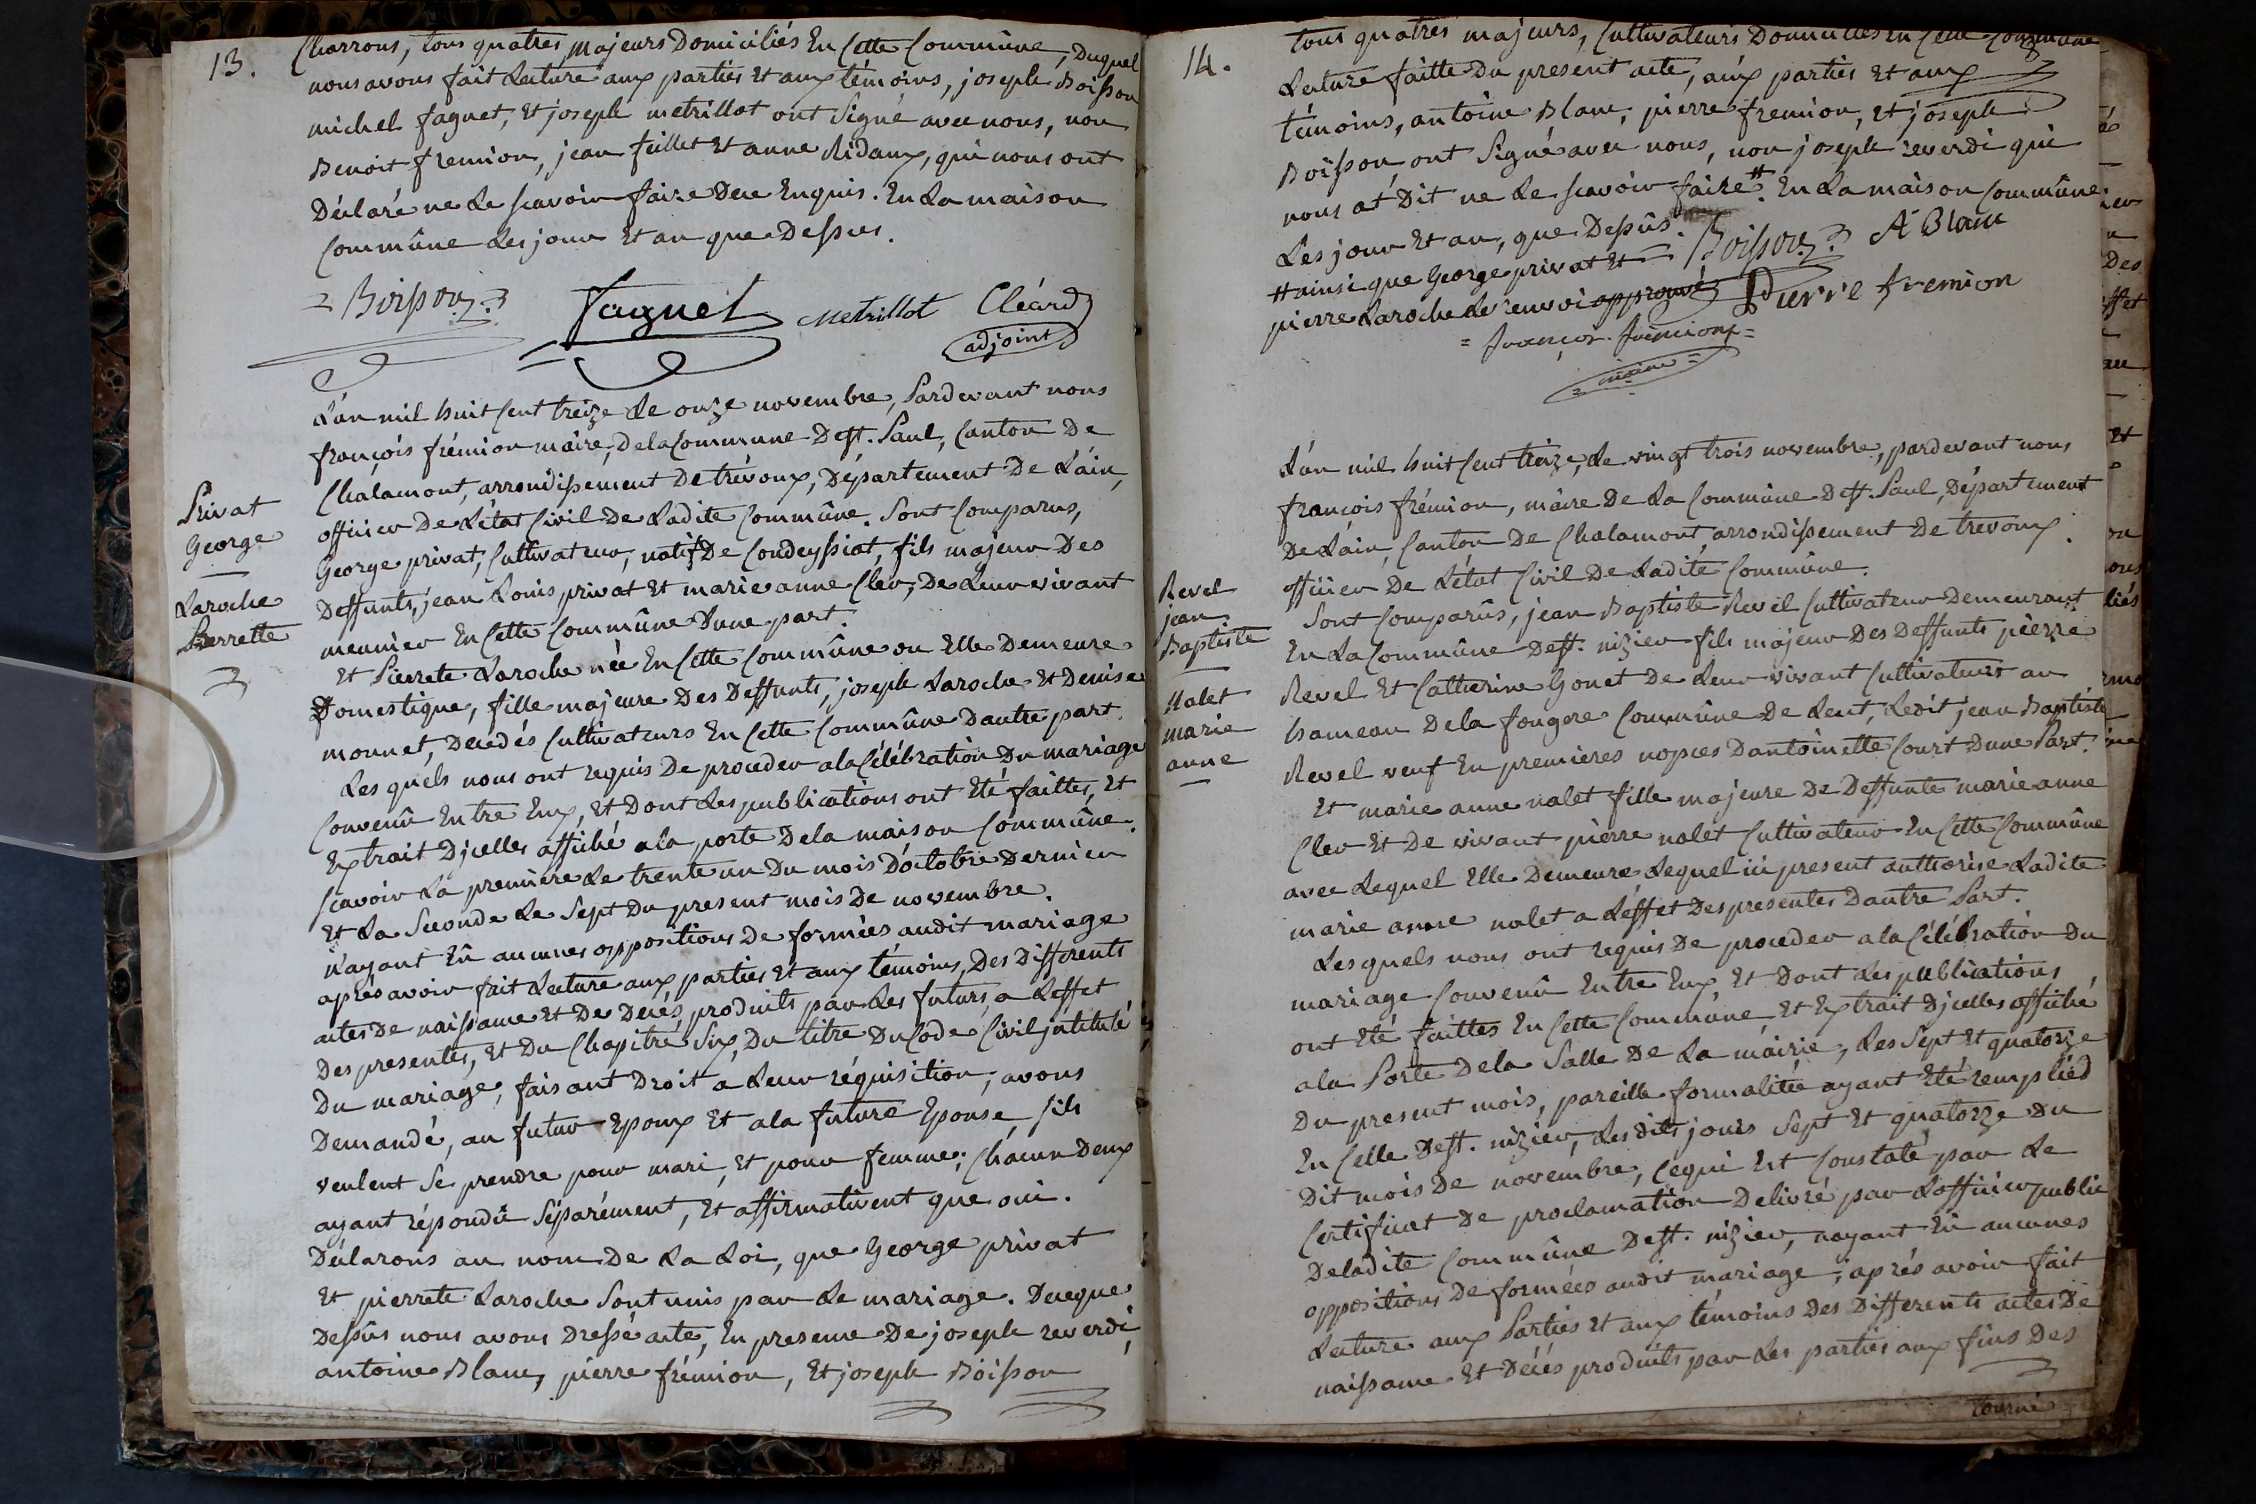 13.
Charrons, tous quatres majeurs Domiciliés En Cette Commûne, Duquel
nous avons fait Lecture aux parties Et aux témoins, joseph Boisson
michel faguet, Et joseph metrillot ont Signé avec nous, non
Benoit fremion, jean feillet Et anne Ridaux, qui nous ont
Déclaré ne Le scavoir faire Dece Enquis. En La maison
Commûne Les jour Et an que Dessus.
Boisson
faguet
Metrillot
Cléard
adjoint
Privat
George
Laroche
Pierrette
L'an mil huit Cent treize Le onze novembre, Pardevant nous
françois frémion maire, Dela Commune De St. Paul, Canton De
Chalamont, arrondissement De trévoux, Département De L'ain,
officier De L'état Civil De Ladite Commûne. Sont Comparus,
George privat, Cultivateur, natif De Condeyssiat, fils majeur Des
Deffunts, jean Louis privat Et marie anne Cler, De Leur vivant
meunier En Cette Commûne D'une part.
Et Pierrete Laroche née En Cette Commûne ou Elle Demeure
Domestique, fille majeure Des Deffunts, joseph Laroche Et Denise
monnet, Decedés Cultivateurs En Cette Commûne Dautre part.
Les quels nous ont requis De proceder ala Célébration Du mariage
Convenû Entre Eux, Et Dont Les publications ont Eté faittes, Et
Extrait D'jcelles affiché ala porte Dela maison Commûne.
Scavoir La premiere Le trente un Du mois D'octobre Dernier
Et La Seconde Le Sept Du present mois De novembre.
N'ayant Eû aucunes oppositions De formées audit mariage
aprés avoir fait Lecture aux parties Et aux témoins, Des Differents
actes De naissance Et De Decés produits par Les futurs, a L'effet
Des presentes, Et Du Chapitre Six, Du titre Du Code Civil jntitulé
Du mariage, faisant Droit a Leur réquisition, avons
Demandé, au futur Epoux Et ala future Epouse, sils
veulent Se prendre pour mari, Et pour femme; Chacun Deux
ayant répondû Séparément, Et affirmativent que oui.
Déclarons au nom De La Loi, que George privat
Et pierrete Laroche Sont unis par Le mariage. Dece que
Dessûs nous avons Dressé acte, En presence De joseph reverdi,
antoine Blanc, pierre frémion, Et joseph Boisson
14.
tous quatres majeurs, Cultivateurs Domiciliés En Cette Commûne
Lecture faitte Du present acte, aux parties Et aux
témoins, antoine Blanc, pierre fremion, Et joseph
Boisson, ont Signé avec nous, non joseph reverdi qui
nous at Dit ne Le scavoir faire #. En La maison Commûne
Les jour Et an, que Dessûs.
# ainsi que George privat Et
pierre Laroche Le renvoi approuvé
Boisson
A Blanc
Pierre fremion
françois frémion
maire
Revel
jean
Baptiste
Nalet
marie
anne
L'an mil huit Cent treize, Le vingt trois novembre, pardevant nous
françois frémion, maire De La Commûne De St. Paul, Département
De L'ain, Canton De Chalamont, arrondissement De trevoux.
officier De L'état Civil De Ladite Commûne.
Sont Comparûs, jean Baptiste Revel Cultivateur Demeurant
En La Commûne De St. nizier fils majeur Des Deffunts pierre
Revel Et Catherine Gonet De Leur vivant Cultivateurs au
hameau Dela fougere Commûne De Lent, Ledit jean Baptiste
Revel veuf En premieres nopces Dantoinette Court D'une Part.
Et marie anne nalet fille majeure De Deffunte marie anne
Cler Et De vivant pierre nalet Cultivateur En Cette Commûne
avec Lequel Elle Demeure, Lequel ici present authorise Ladite
marie anne nalet a L'éffet Des presentes Dautre Part.
Les quels nous ont requis De proceder ala Célébration Du
mariage Convenû Entre Eux Et Dont Les publications
ont Eté faittes En Cette Commûne, Et Extrait D'jcelles affiché
ala Porte Dela Salle De La mairie, Les Sept Et quatorze
Du present mois, pareille formalitée ayant Eté remplied
En Celle De St. nizier, Les dits jours Sept Et quatorze Du
Dit mois De novembre, Cequi Est Constaté par Le
Certificat De proclamation Delivré par L'officier public
De Ladite Commûne De St. nizier, nayant Eû aucunes
oppositions De formées audit mariage; aprés avoir fait
Lecture aux Parties Et aux témoins Des Differents actes De
naissance Et Décés produits par Les parties aux fins Des
tourné